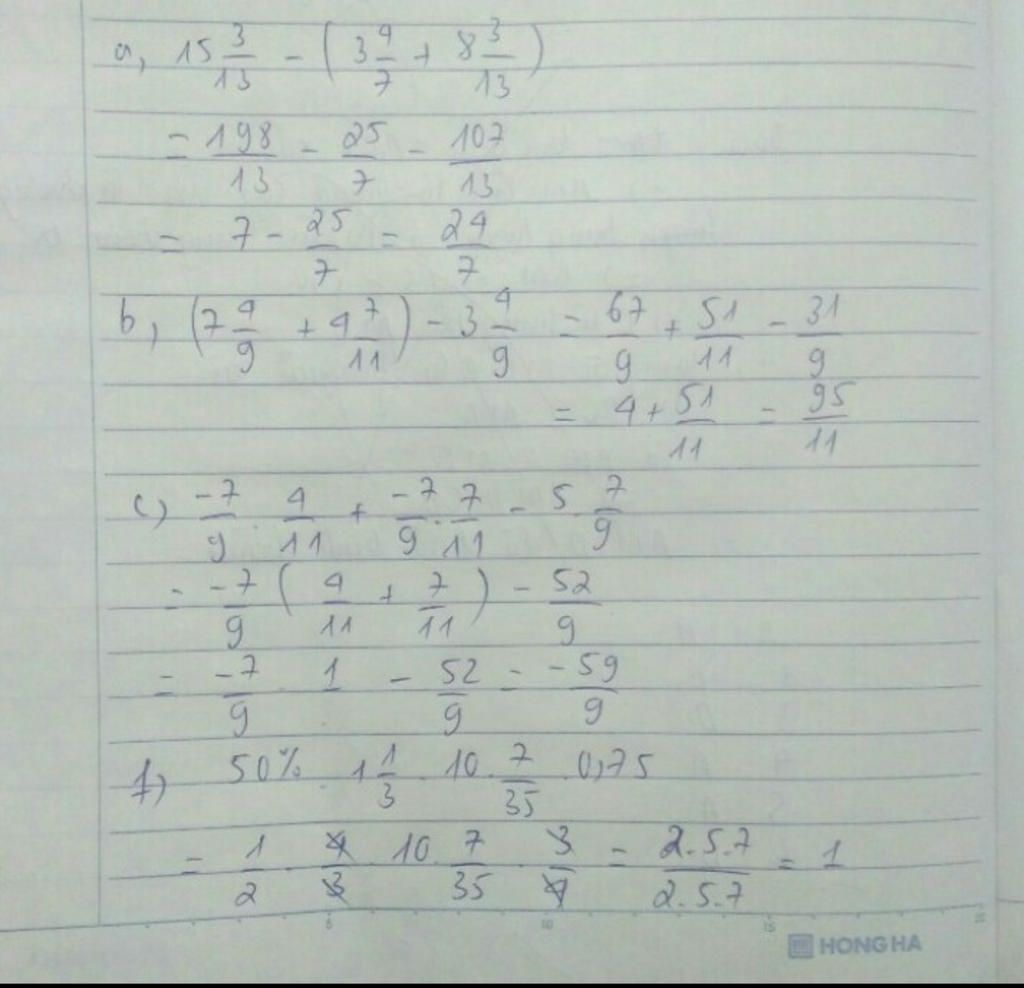 a, 15 3/13 - (3 4/7 + 8 3/13)
= 198/13 - 25/7 - 107/13
= 7 - 25/7 = 24/7
b, (7 4/9 + 4 7/11) - 3 4/9 = 67/9 + 51/11 - 31/9
= 4 + 51/11 = 95/11
c) -7/9 . 4/11 + -7/9 . 7/11 - 5 . 7/9
= -7/9 (4/11 + 7/11) - 52/9
= -7/9 . 1 - 52/9 = -59/9
f) 50% . 1 1/3 . 10 . 7/35 . 0,75
= 1/2 . 4/3 . 10 . 7/35 . 3/4 = 2.5.7/2.5.7 = 1
5 10 15
HONG HA